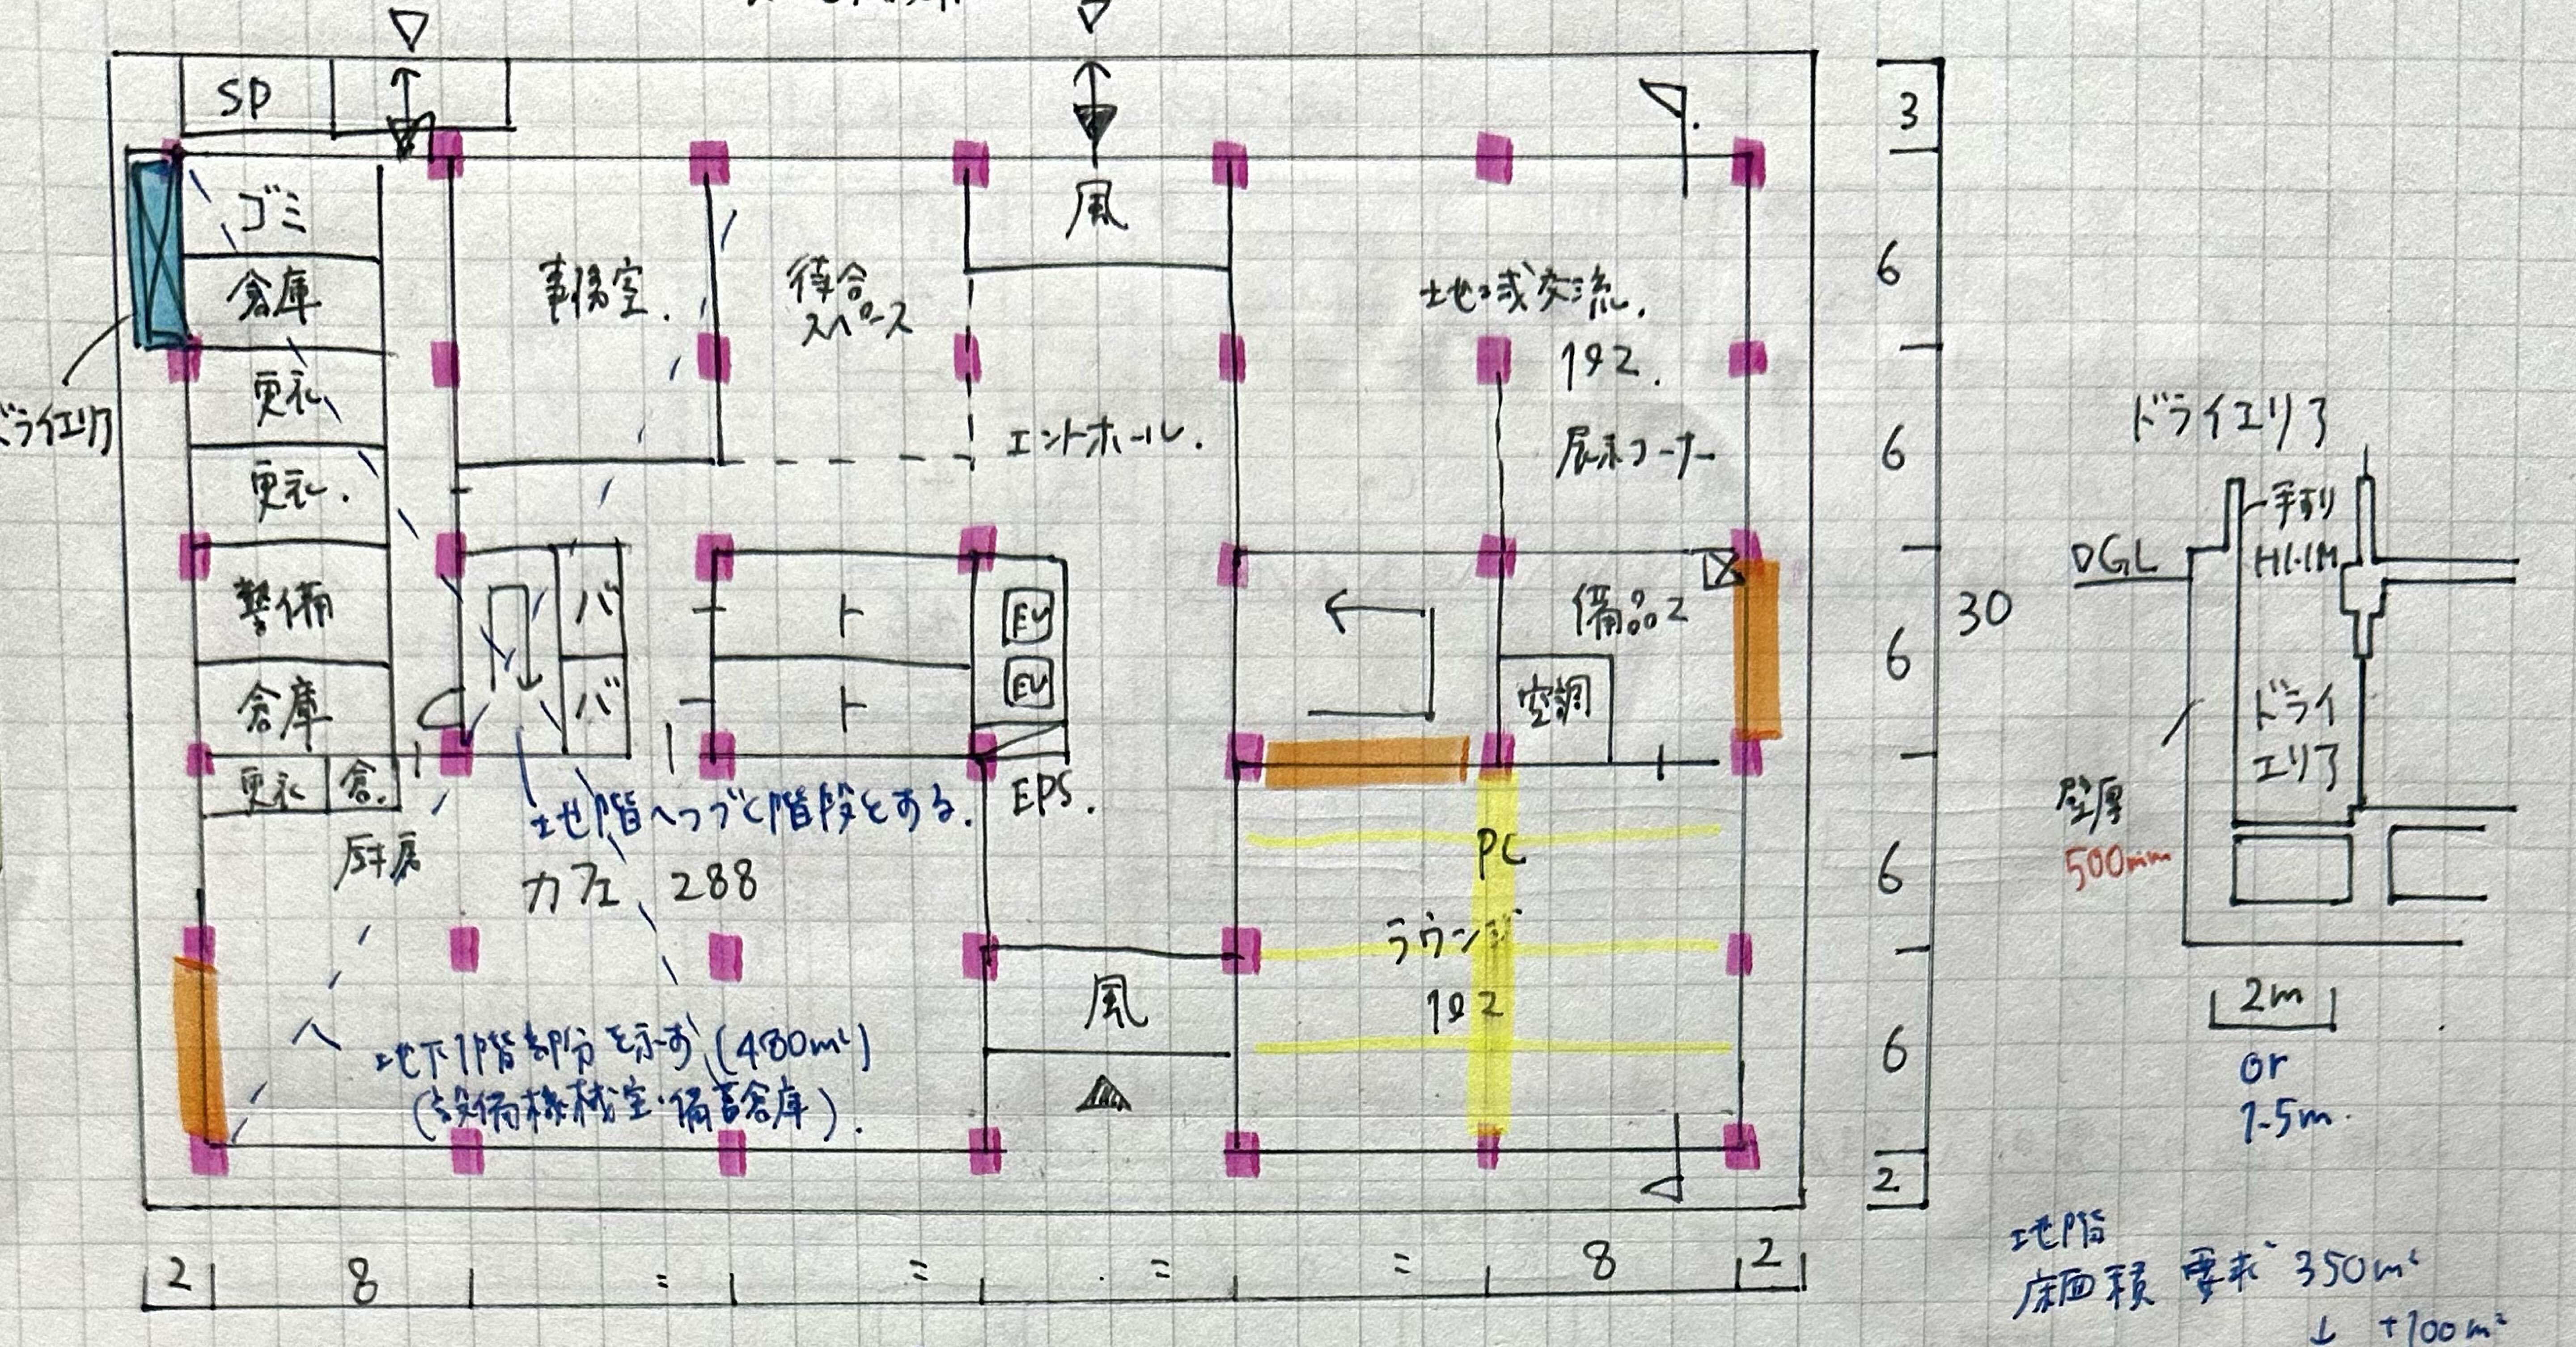 SP
ゴミ
倉庫
更衣
更衣.
警備
倉庫
更衣 倉.
厨房
ドライエリア
事務室.
待合
スペース
風
エントホール.
地域交流.
192.
展示コーナー
バ
バ
ト
ト
EV
EV
EPS.
備品2
空調
地階へつづく階段とする.
カフェ 288
PC
ラウンジ
192
風
地下1階部分を示す (480m²)
(設備機械室・備蓄倉庫).
2 8 = = = = 8 2
3
6
6
6
6
6
2
30
ドライエリア
手すり
H1.1M
DGL
ドライ
エリア
壁厚
500mm
2m
or
1.5m.
地階
床面積 要求 350m²
↓ +100m²